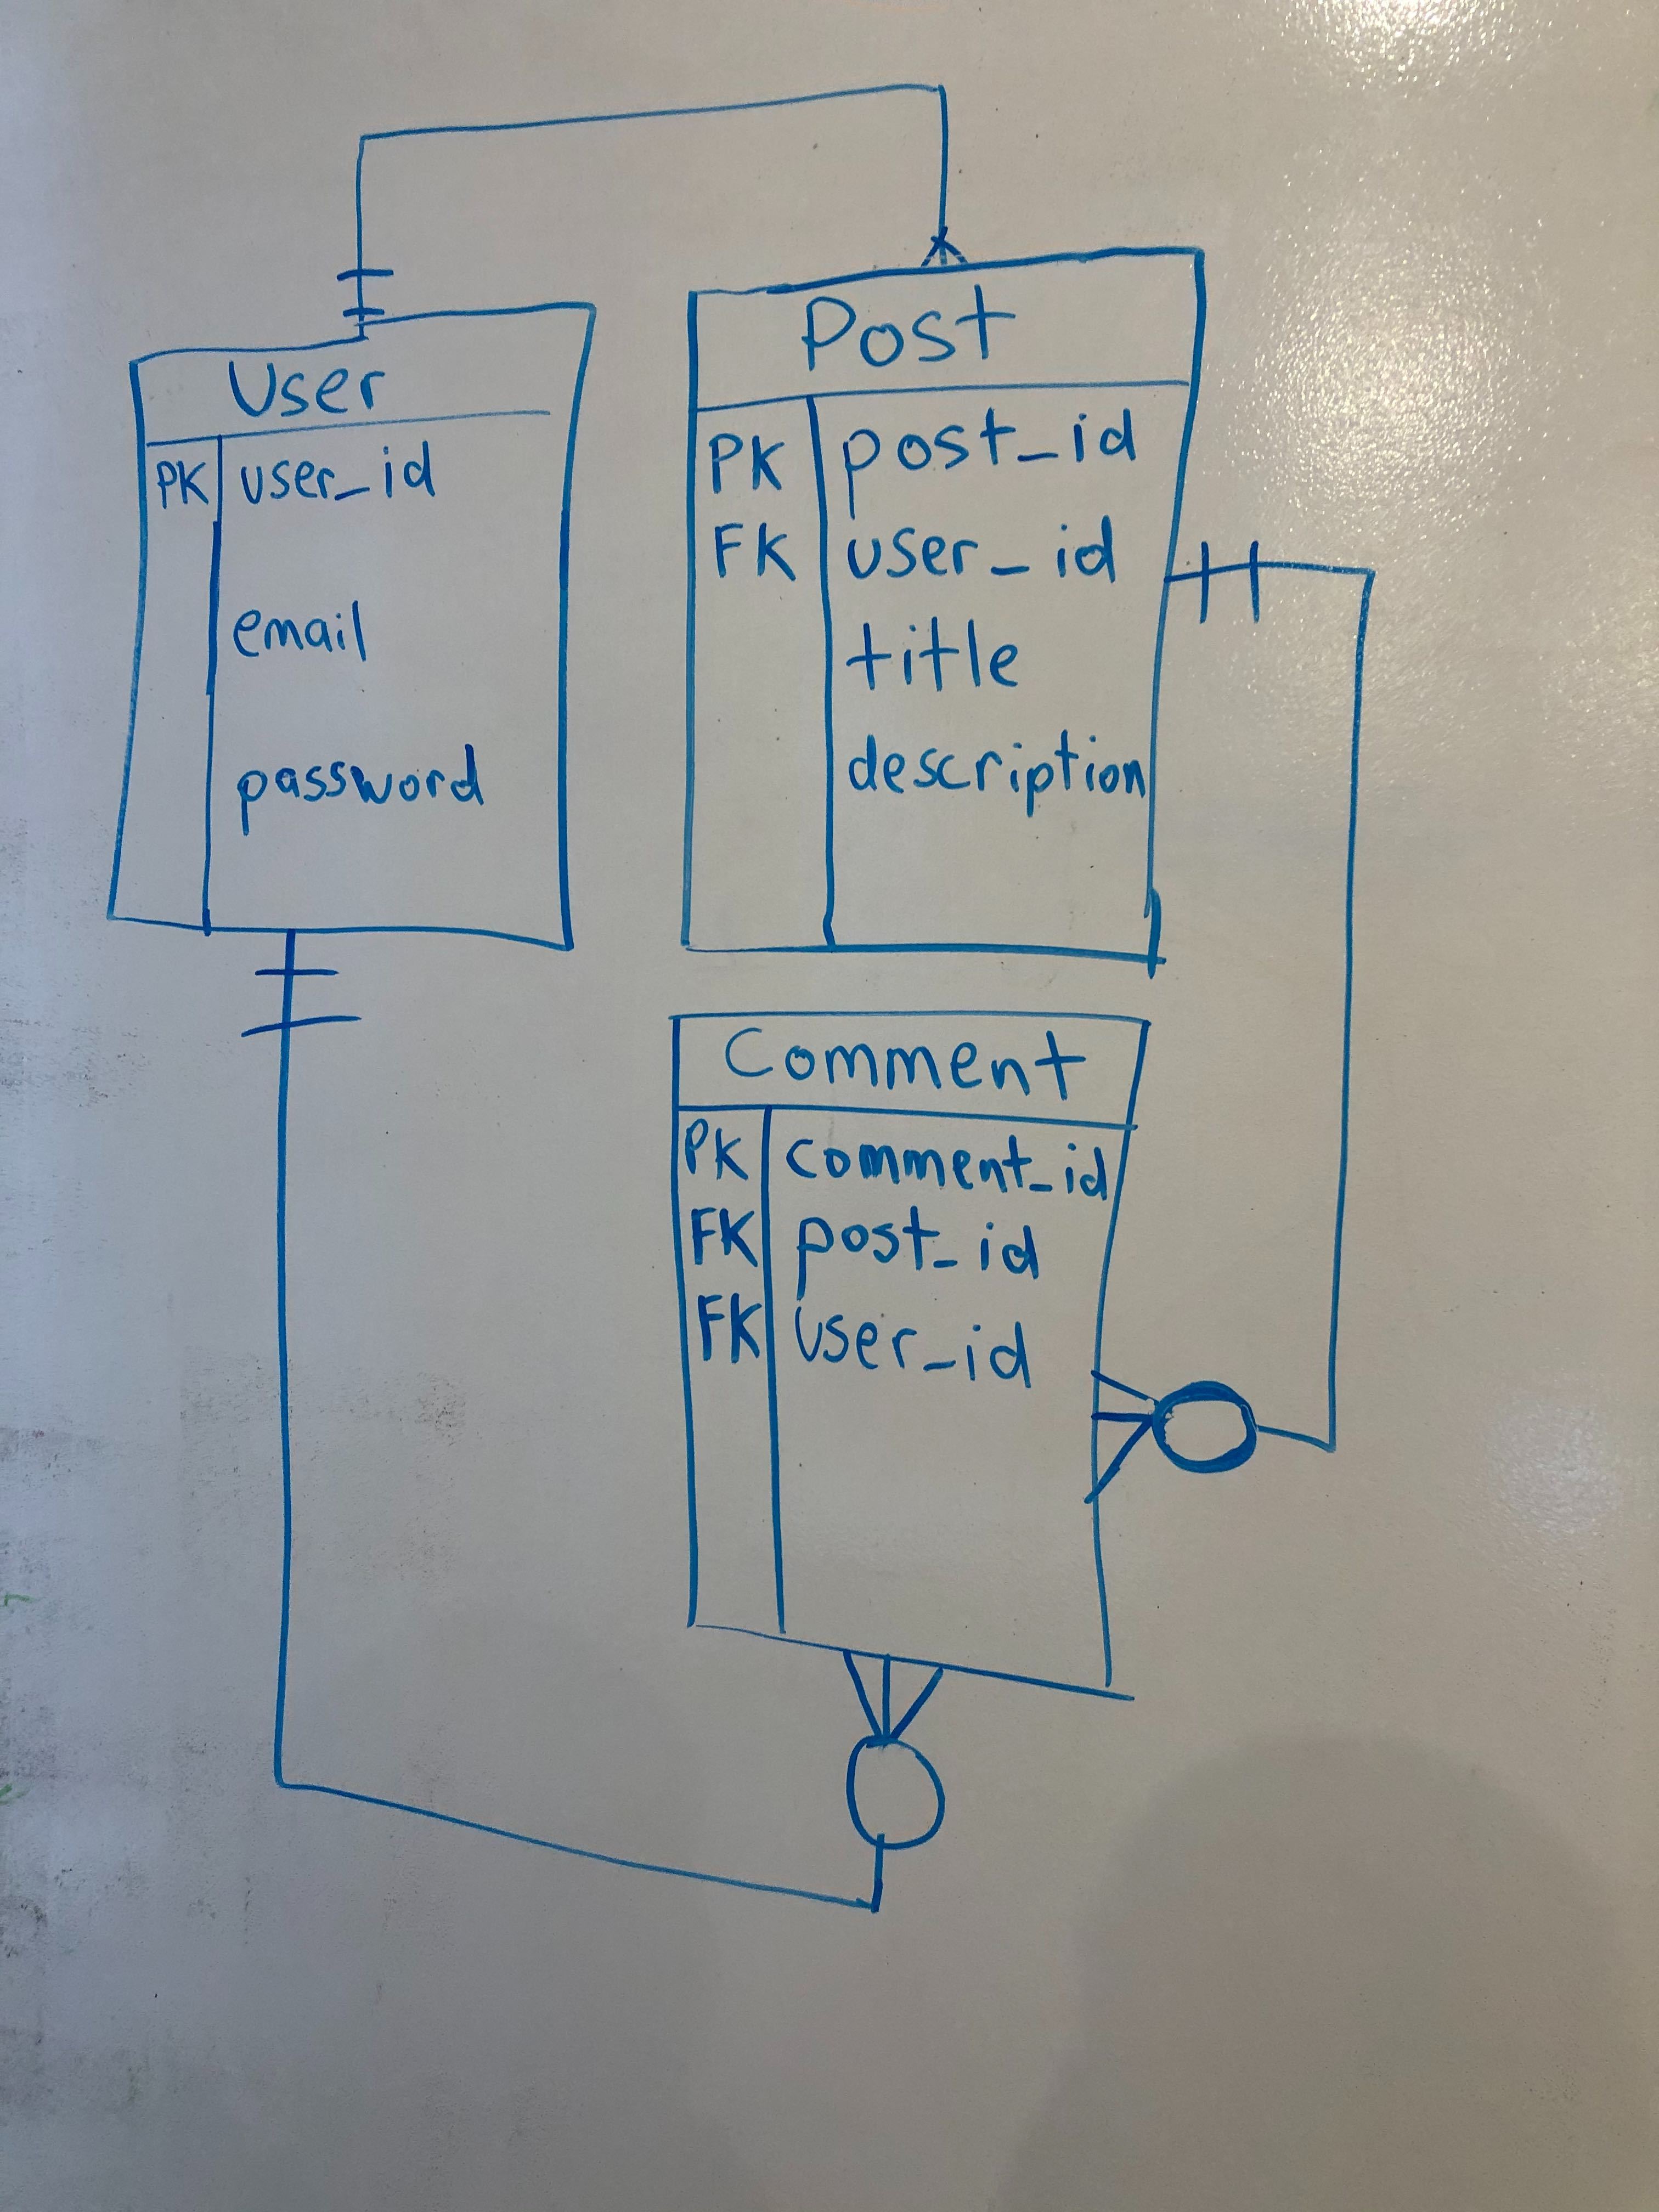 User
PK user_id
email
password
Post
PK post_id
FK user_id
title
description
Comment
PK comment_id
FK post_id
FK user_id